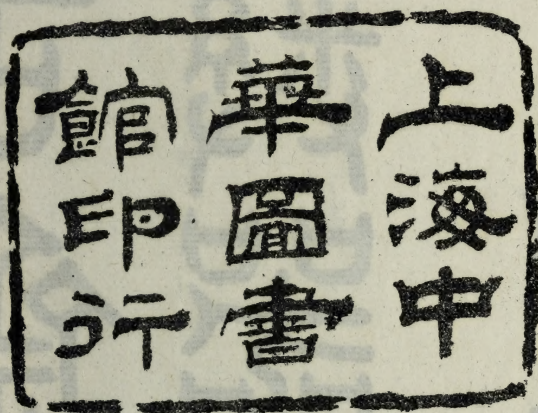 上海中
華圖書
館印行